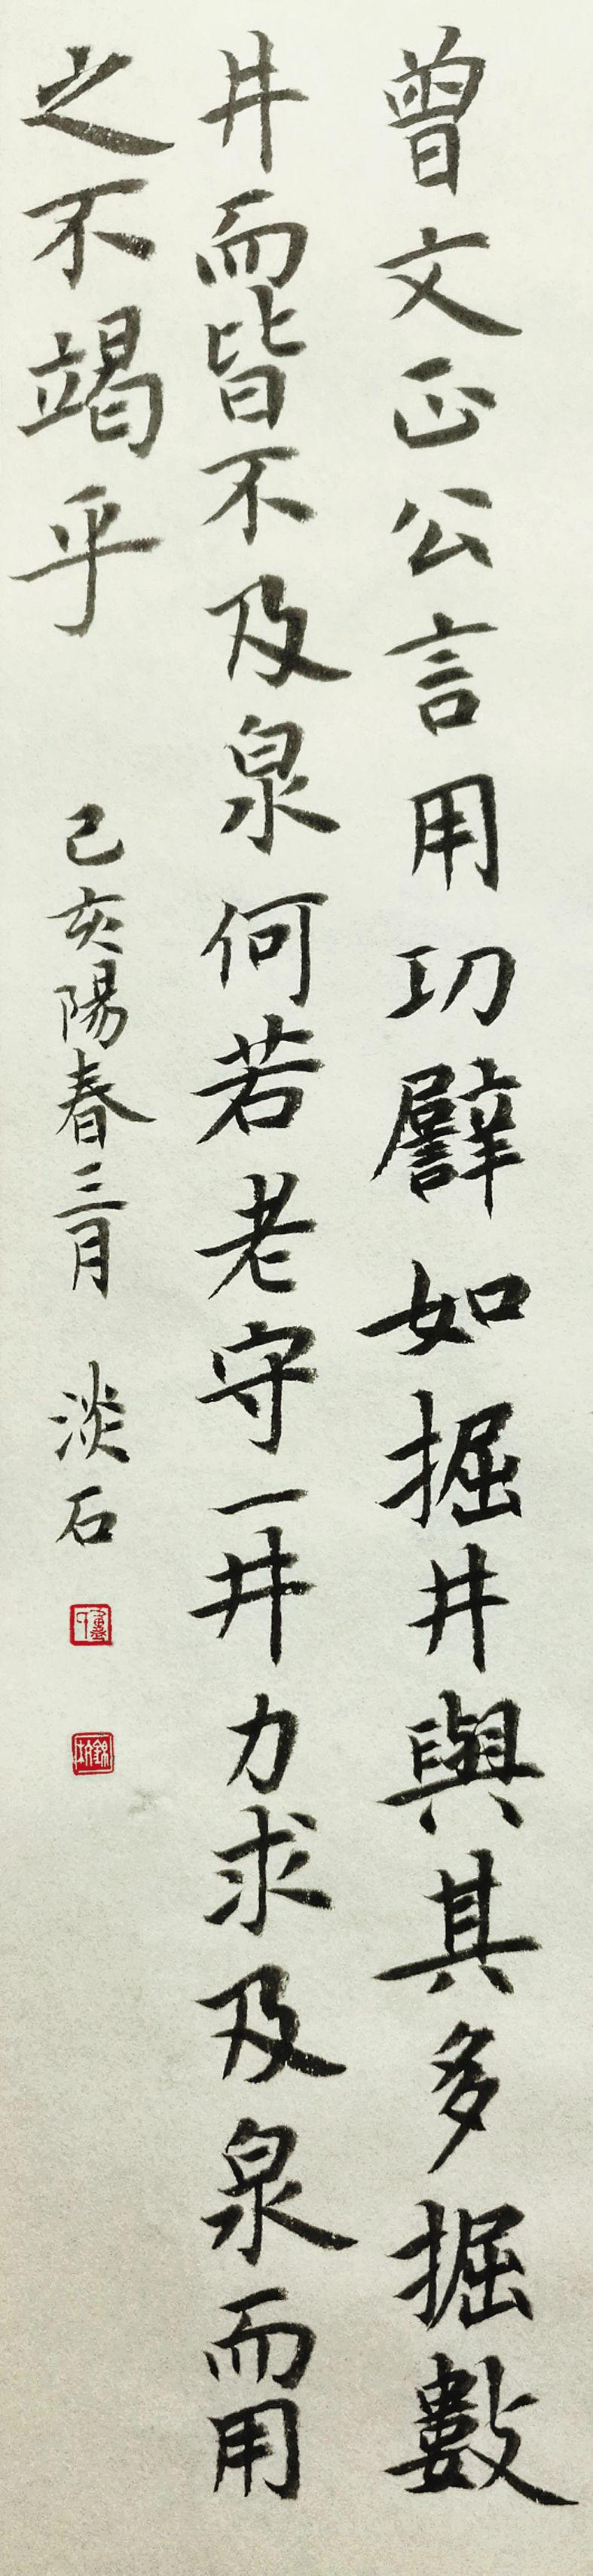 曾文正公言用功譬如掘井與其多掘數
井而皆不及泉何若老守一井力求及泉而用
之不竭乎
己亥陽春三月 淡石